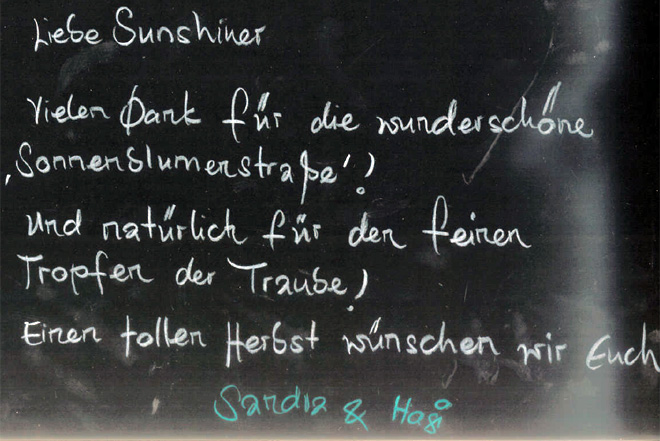 Liebe Sunshiner
Vielen Dank für die wunderschöne
‚Sonnenblumenstraße'!
Und natürlich für den feinen
Tropfen der Traube!
Einen tollen Herbst wünschen wir Euch
Sandra & Hagi